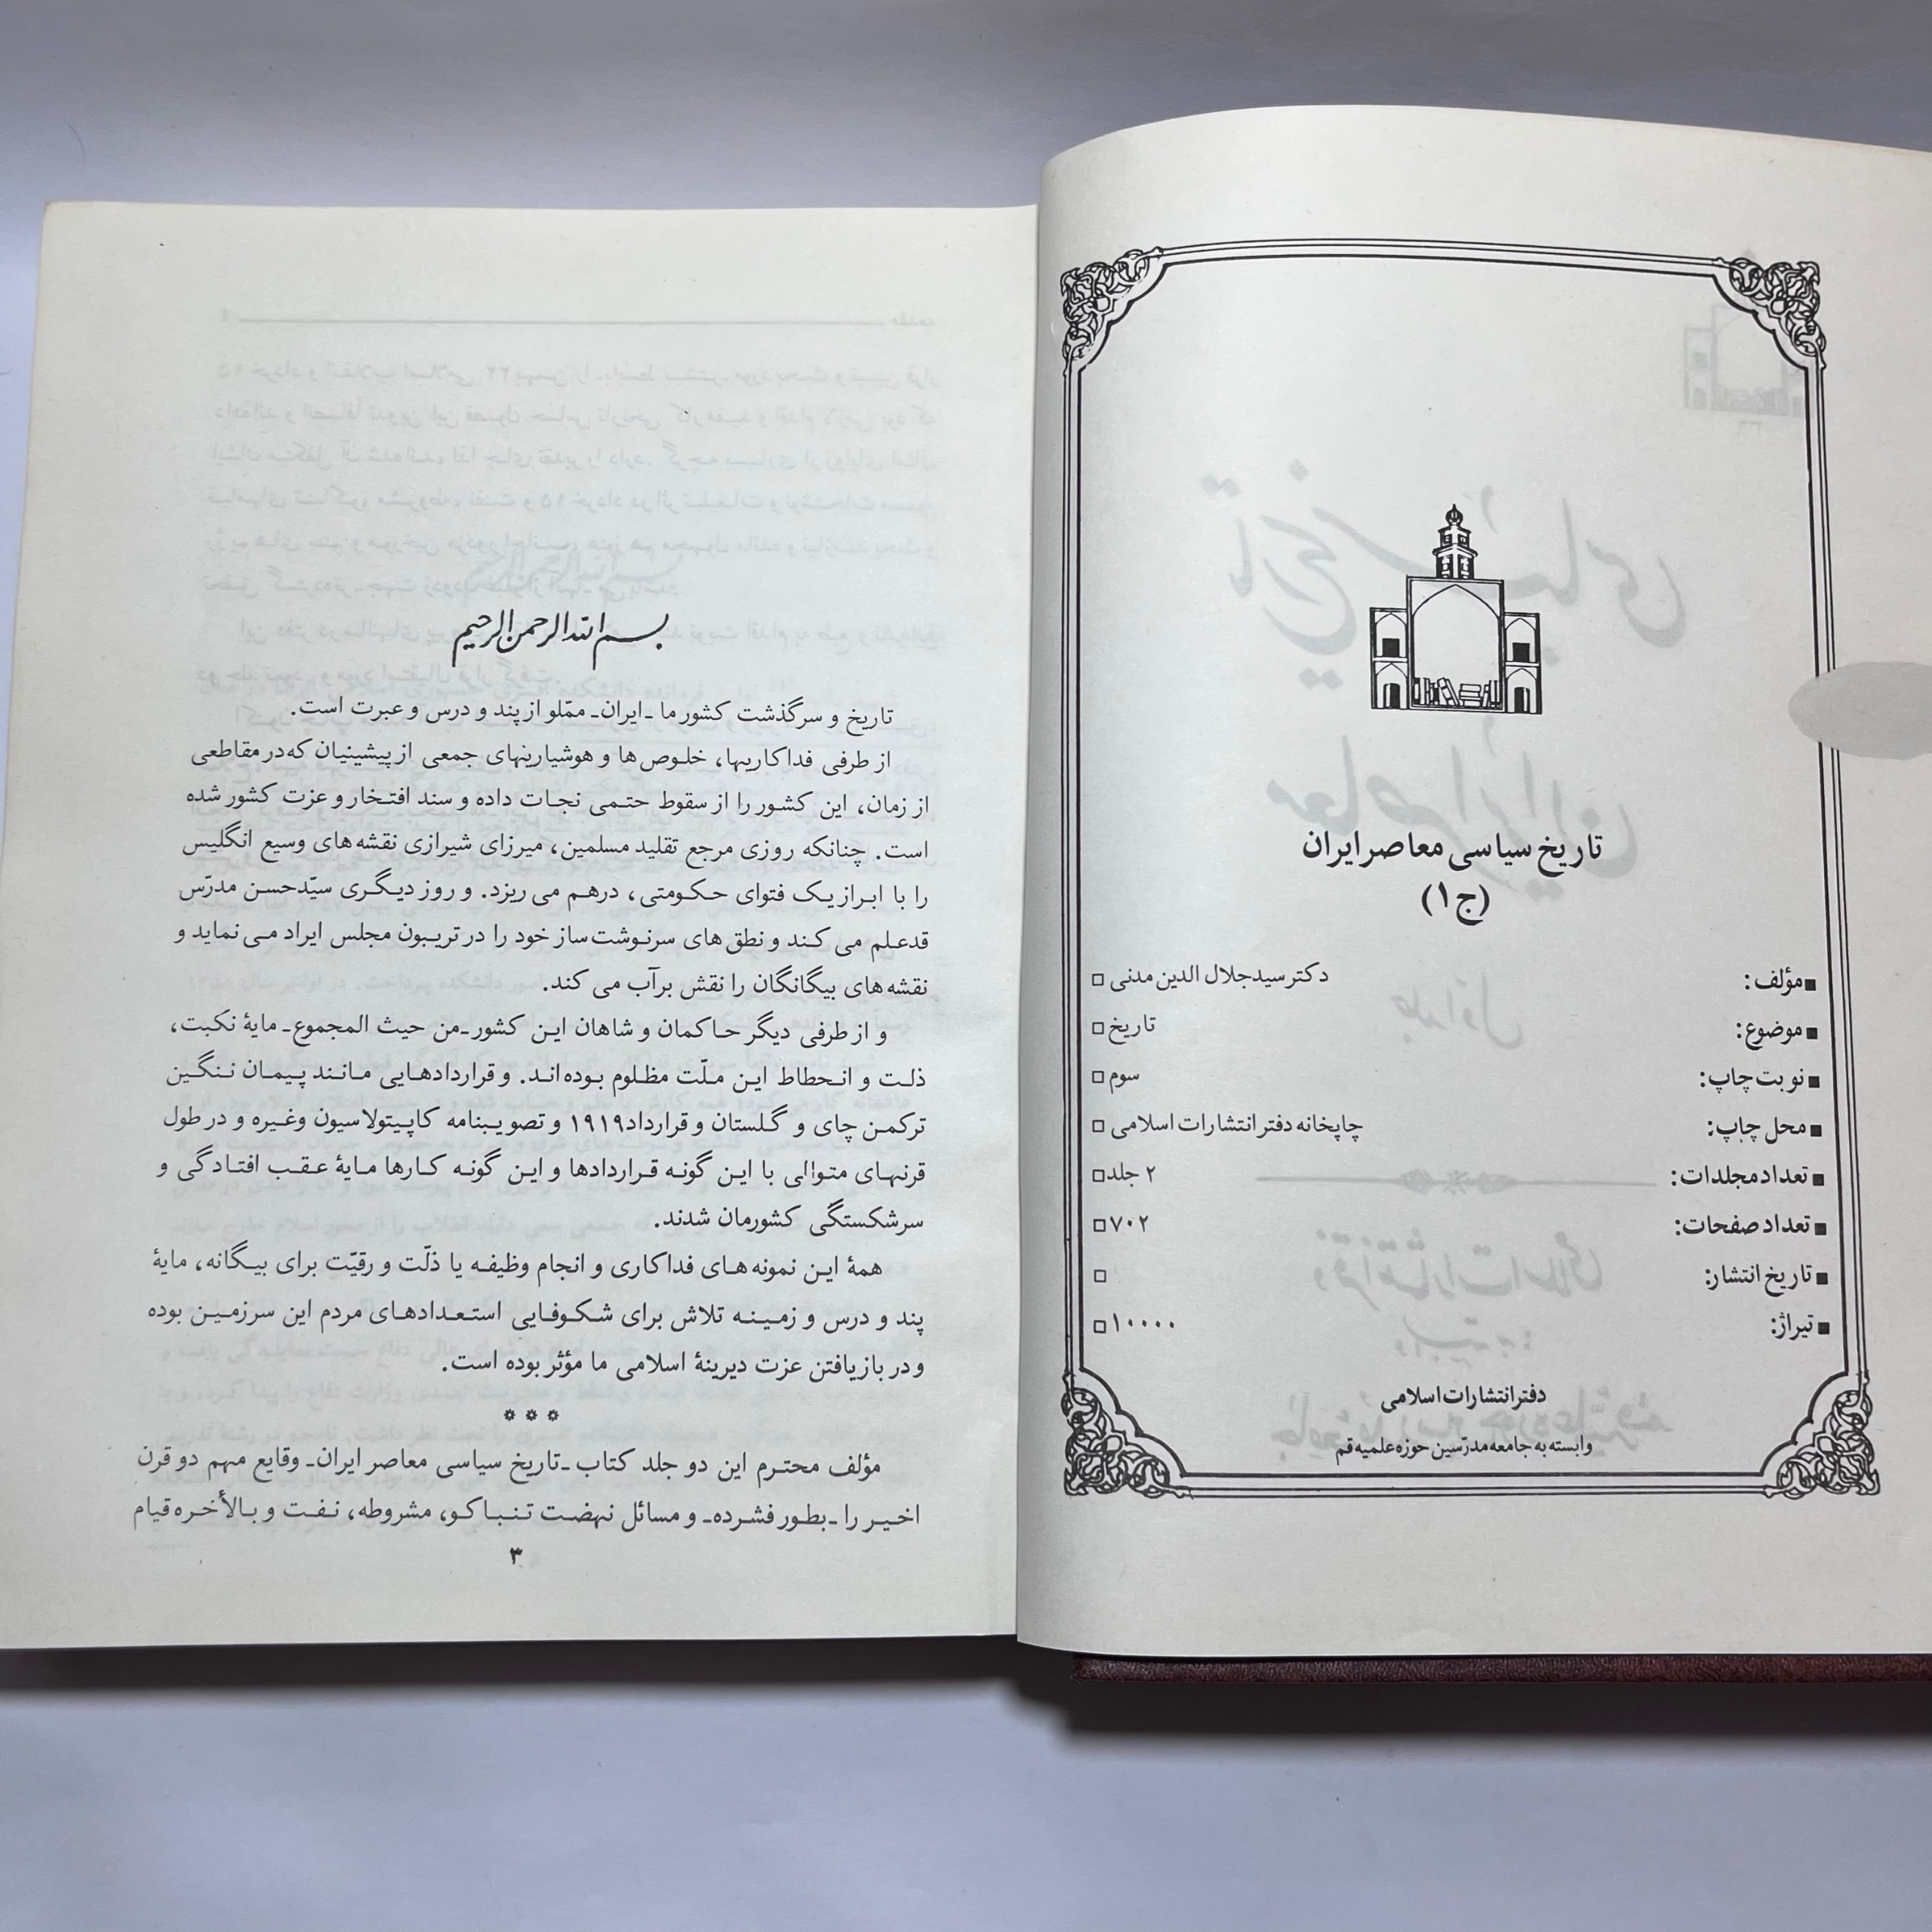 تاریخ سیاسی معاصر ایران
(ج ۱)
■ مؤلف: دکتر سید جلال الدین مدنی □
■ موضوع: تاریخ □
■ نوبت چاپ: سوم □
■ محل چاپ: چاپخانه دفتر انتشارات اسلامی □
■ تعداد مجلدات: ۲ جلد □
■ تعداد صفحات: ۷۰۲ □
■ تاریخ انتشار: □
■ تیراژ: ۱۰۰۰۰ □
دفتر انتشارات اسلامی
وابسته به جامعه مدرّسین حوزه علمیه قم
بسم الله الرحمن الرحیم
تاریخ و سرگذشت کشور ما ـ ایران ـ ممّلو از پند و درس و عبرت است.
از طرفی فداکاریها، خلوص ها و هوشیاریهای جمعی از پیشینیان که در مقاطعی
از زمان، این کشور را از سقوط حتمی نجات داده و سند افتخار و عزت کشور شده
است. چنانکه روزی مرجع تقلید مسلمین، میرزای شیرازی نقشه های وسیع انگلیس
را با ابراز یک فتوای حکومتی، درهم می ریزد. و روز دیگری سیّدحسن مدرّس
قدعلم می کند و نطق های سرنوشت ساز خود را در تریبون مجلس ایراد می نماید و
نقشه های بیگانگان را نقش برآب می کند.
و از طرفی دیگر حاکمان و شاهان این کشور ـ من حیث المجموع ـ مایهٔ نکبت،
ذلت و انحطاط این ملّت مظلوم بوده اند. و قراردادهایی مانند پیمان ننگین
ترکمن چای و گلستان و قرارداد ۱۹۱۹ و تصویبنامه کاپیتولاسیون وغیره و در طول
قرنهای متوالی با این گونه قراردادها و این گونه کارها مایهٔ عقب افتادگی و
سرشکستگی کشورمان شدند.
همهٔ این نمونه های فداکاری و انجام وظیفه یا ذلّت و رقیّت برای بیگانه، مایهٔ
پند و درس و زمینه تلاش برای شکوفایی استعدادهای مردم این سرزمین بوده
و در بازیافتن عزت دیرینهٔ اسلامی ما مؤثر بوده است.
* * *
مؤلف محترم این دو جلد کتاب ـ تاریخ سیاسی معاصر ایران ـ وقایع مهم دو قرن
اخیر را ـ بطور فشرده ـ و مسائل نهضت تنباکو، مشروطه، نفت و بالأخره قیام
۳